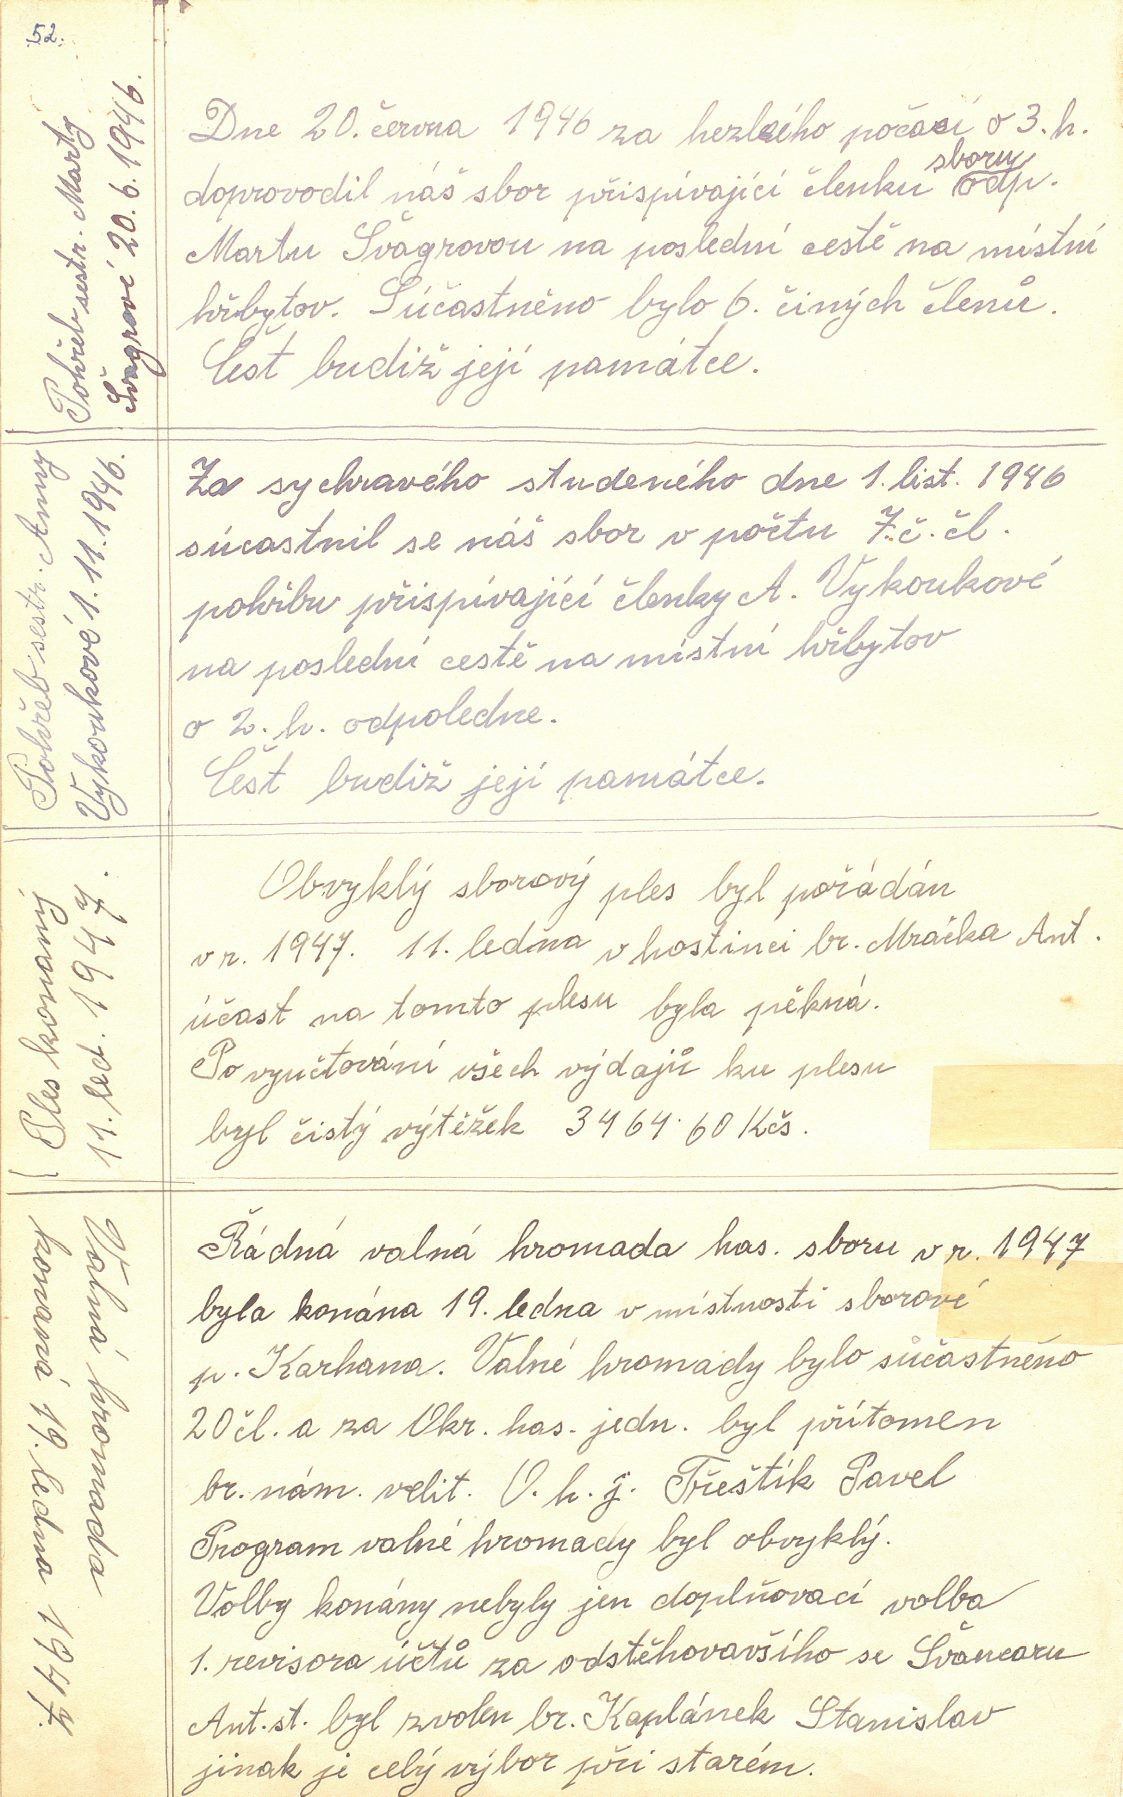 52.
Pohřeb sestr. Marty
Švagrové 20.6.1946.
Dne 20. června 1946 za hezkého počasí o 3. h.
sboru
doprovodil náš sbor přispívající členku odp.
Martu Švagrovou na poslední cestě na místní
hřbytov. Súčastněno bylo 6. činých členů.
Čest budiž její památce.
Pohřeb sestr. Anny
Vykoukové 1.11.1946.
Za sychravého studeného dne 1. list. 1946
súcastnil se náš sbor v počtu 7.č.čl.
pohřbu přispívající členky A. Vykoukové
na poslední cestě na místní hřbytov
o 2. h. odpoledne.
Čest budiž její památce.
Ples konaný
11. led. 1947.
Obvyklý sborový ples byl pořádán
v r. 1947. 11. ledna v hostinci br. Mráčka Ant.
účast na tomto plesu byla pěkná.
Po vyučtování všech výdajů ku plesu
byl čistý výtěžek 3464.60 Kčs.
Valná hromada
konaná 19. ledna 1947.
Řádná valná hromada has. sboru v r. 1947
byla konána 19. ledna v místnosti sborové
p. Karhana. Valné hromady bylo súčastněno
20 čl. a za Okr. has. jedn. byl přítomen
br. nám. velit. O. h. j. Třeštík Pavel
Program valné hromady byl obvyklý.
Volby konány nebyly jen doplňovací volba
1. revisora účtů za odstěhovavšího se Švancaru
Ant. st. byl zvolen br. Kaplánek Stanislav
jinak je celý výbor při starém.